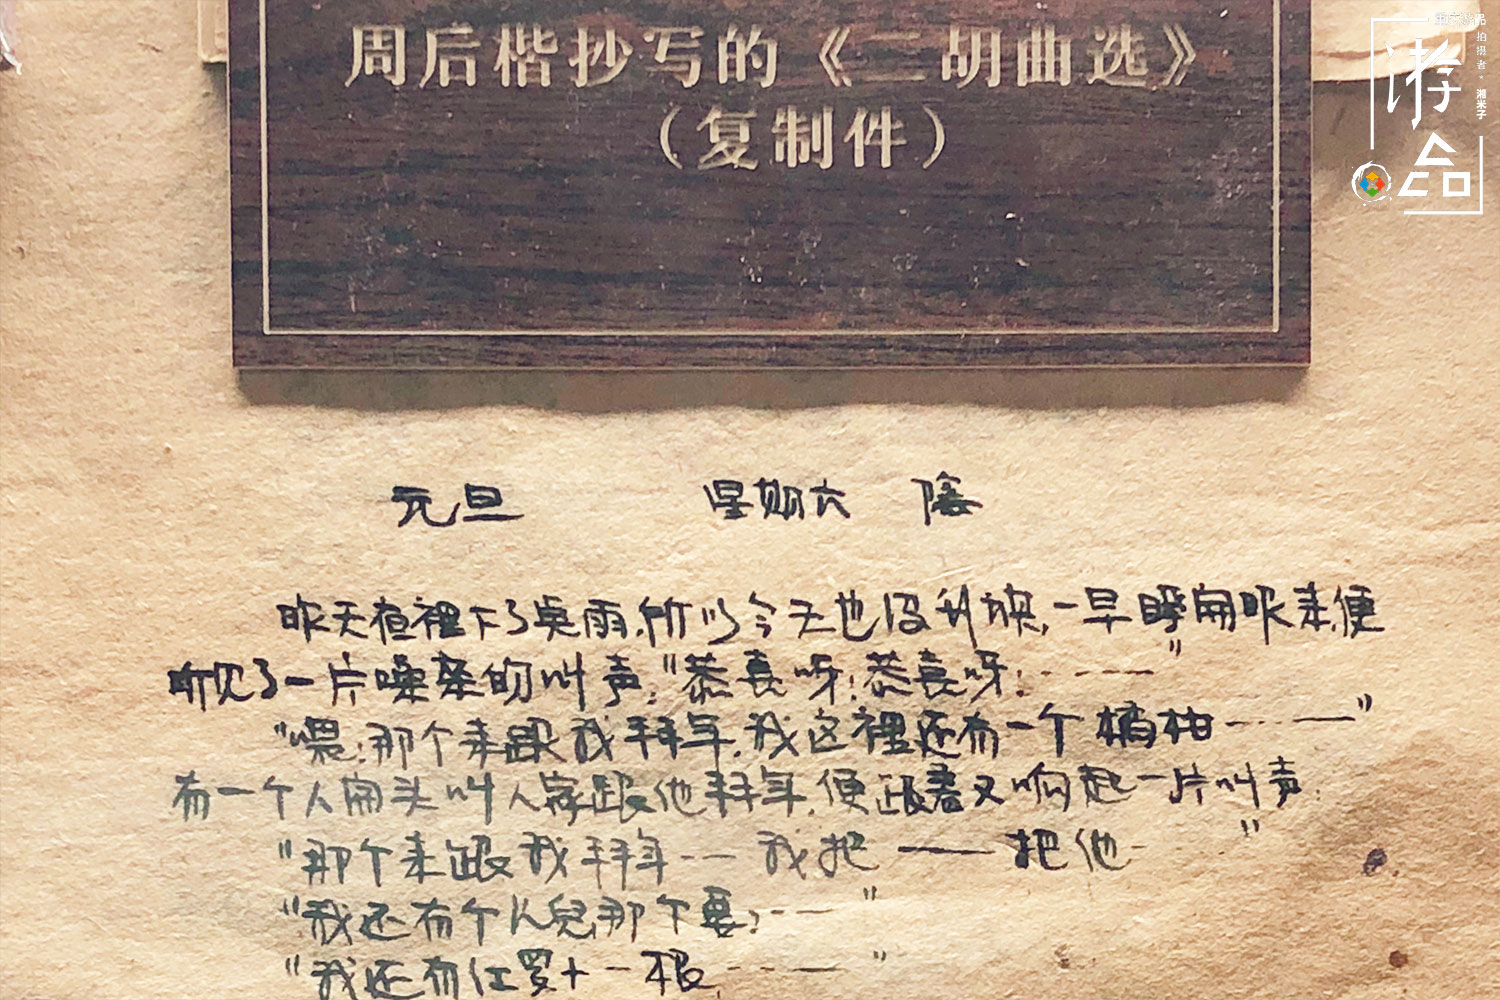 周后楷抄写的《二胡曲选》
（复制件）
拍摄者·湘米子
游合
元旦 星期六 陰
昨天夜裡下了臭雨,所以今天也没升旗,一早睁開眼来,便
听见了一片嘈杂的叫声:"恭喜呀!恭喜呀!……——"
"喂!那个来跟我拜年,我这裡还有一个橘柑……——"
有一个人開头叫人家跟他拜年,便跟着又响起一片叫声:
"那个来跟我拜年…… 我把——把他……"
"我还有个人兒,那个要!……—"
"我还有 十一根……——"